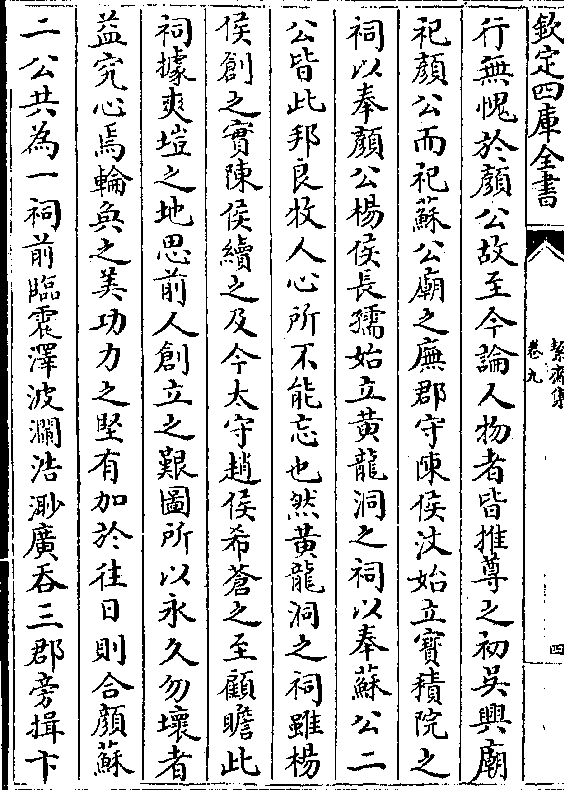 欽定四庫全書
絜齋集
卷九
四
行無愧於顔公故至今論人物者皆推尊之初吳興廟
祀顔公而祀蘇公廟之廡郡守陳侯汶始立寳積院之
祠以奉顔公楊侯長孺始立黄龍洞之祠以奉蘇公二
公皆此邦良牧人心所不能忘也然黄龍洞之祠雖楊
侯創之實陳侯續之及今太守趙侯希蒼之至顧瞻此
祠據爽塏之地思前人創立之艱圖所以永久勿壞者
益究心焉輪奐之美功力之堅有加於往日則合顔蘇
二公共為一祠前臨震澤波瀾浩渺廣吞三郡旁揖卞